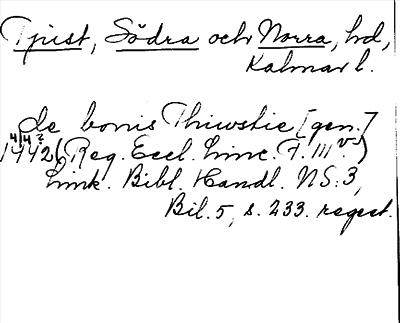 Tjust, Södra och Norra, hd,
Kalmar l.
de bonis Thiwstie [gen.]
4/4?
1442 (Reg. Eccl. Linc. T. III v.)
Link. Bibl. Handl. NS. 3,
Bil. 5, s. 233. regest.